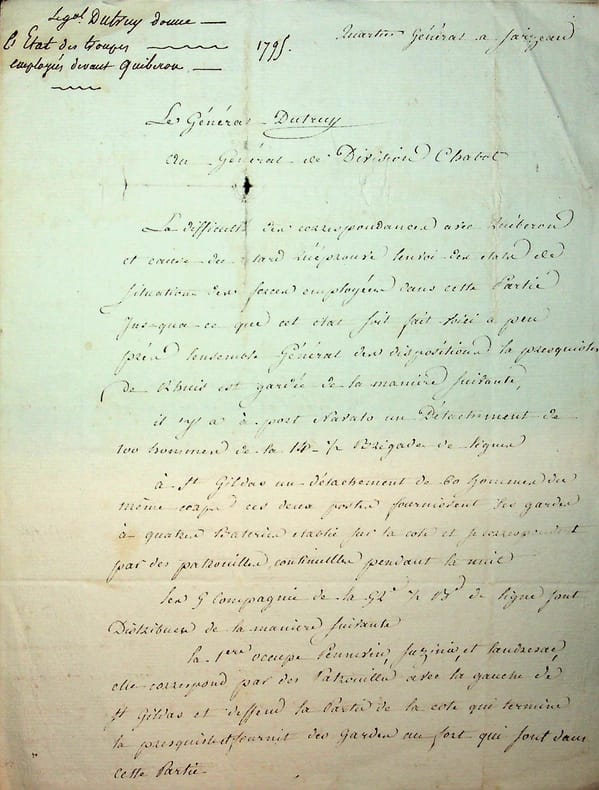 Le gal. Dutruy donne
L'Etat des troupes
employés devant Quiberon
1795.
Quartier Général a Sarzeau
Le Général Dutruy
Au Général de Division Chabot
La difficulté des correspondances avec Quiberon
et cause du retard qu'éprouve lenvoi des etats de
situation des forces employées dans cette Partie
Jus-qua-ce que cet etat soit fait voici a peu
près lensemble Général des dispositions la presquisle
de Rhuis est gardée de la manière suivante,
il y a à port Navalo un Détachment de
100 hommes de la 14e 1/2 Brigade de ligne
à St Gildas un détachement de 60 hommes du
même corps ces deux postes fournissent les gardes
à quatre Batteries etablie sur la cote et se correspondent
par des patrouilles continuelles pendant la nuit
les 9 Compagnie de la 92e 1/2 Be de ligne sont
Distribuées de la manière suivante
la 1ere occupe Penmein, Suzinio, et landresac
elle correspond par des Patrouilles avec la gauche de
St Gildas et deffend la Partie de la cote qui termine
la presquisle et fournit des Gardes au fort qui sont dans
cette Partie